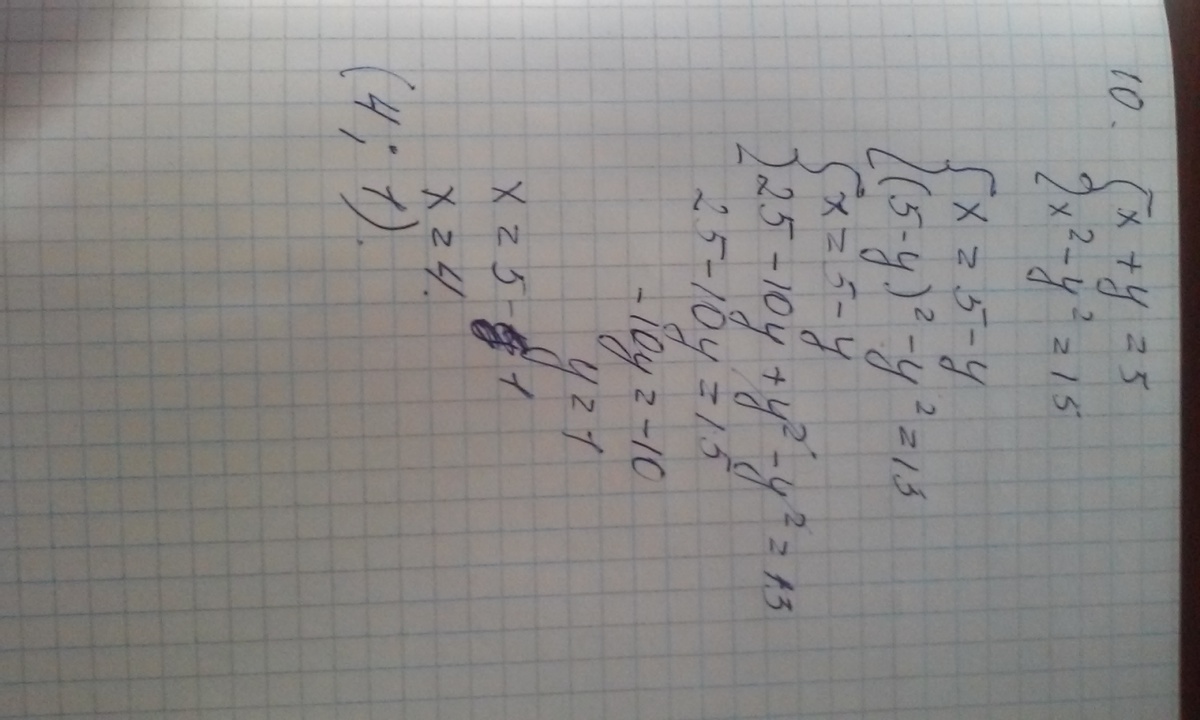 10. { x + y = 5
{ x² - y² = 15
{ x = 5 - y
{ (5 - y)² - y² = 15
{ x = 5 - y
{ 25 - 10y + y² - y² = 15
25 - 10y = 15
-10y = -10
y = 1
x = 5 - 1
x = 4.
(4; 1).